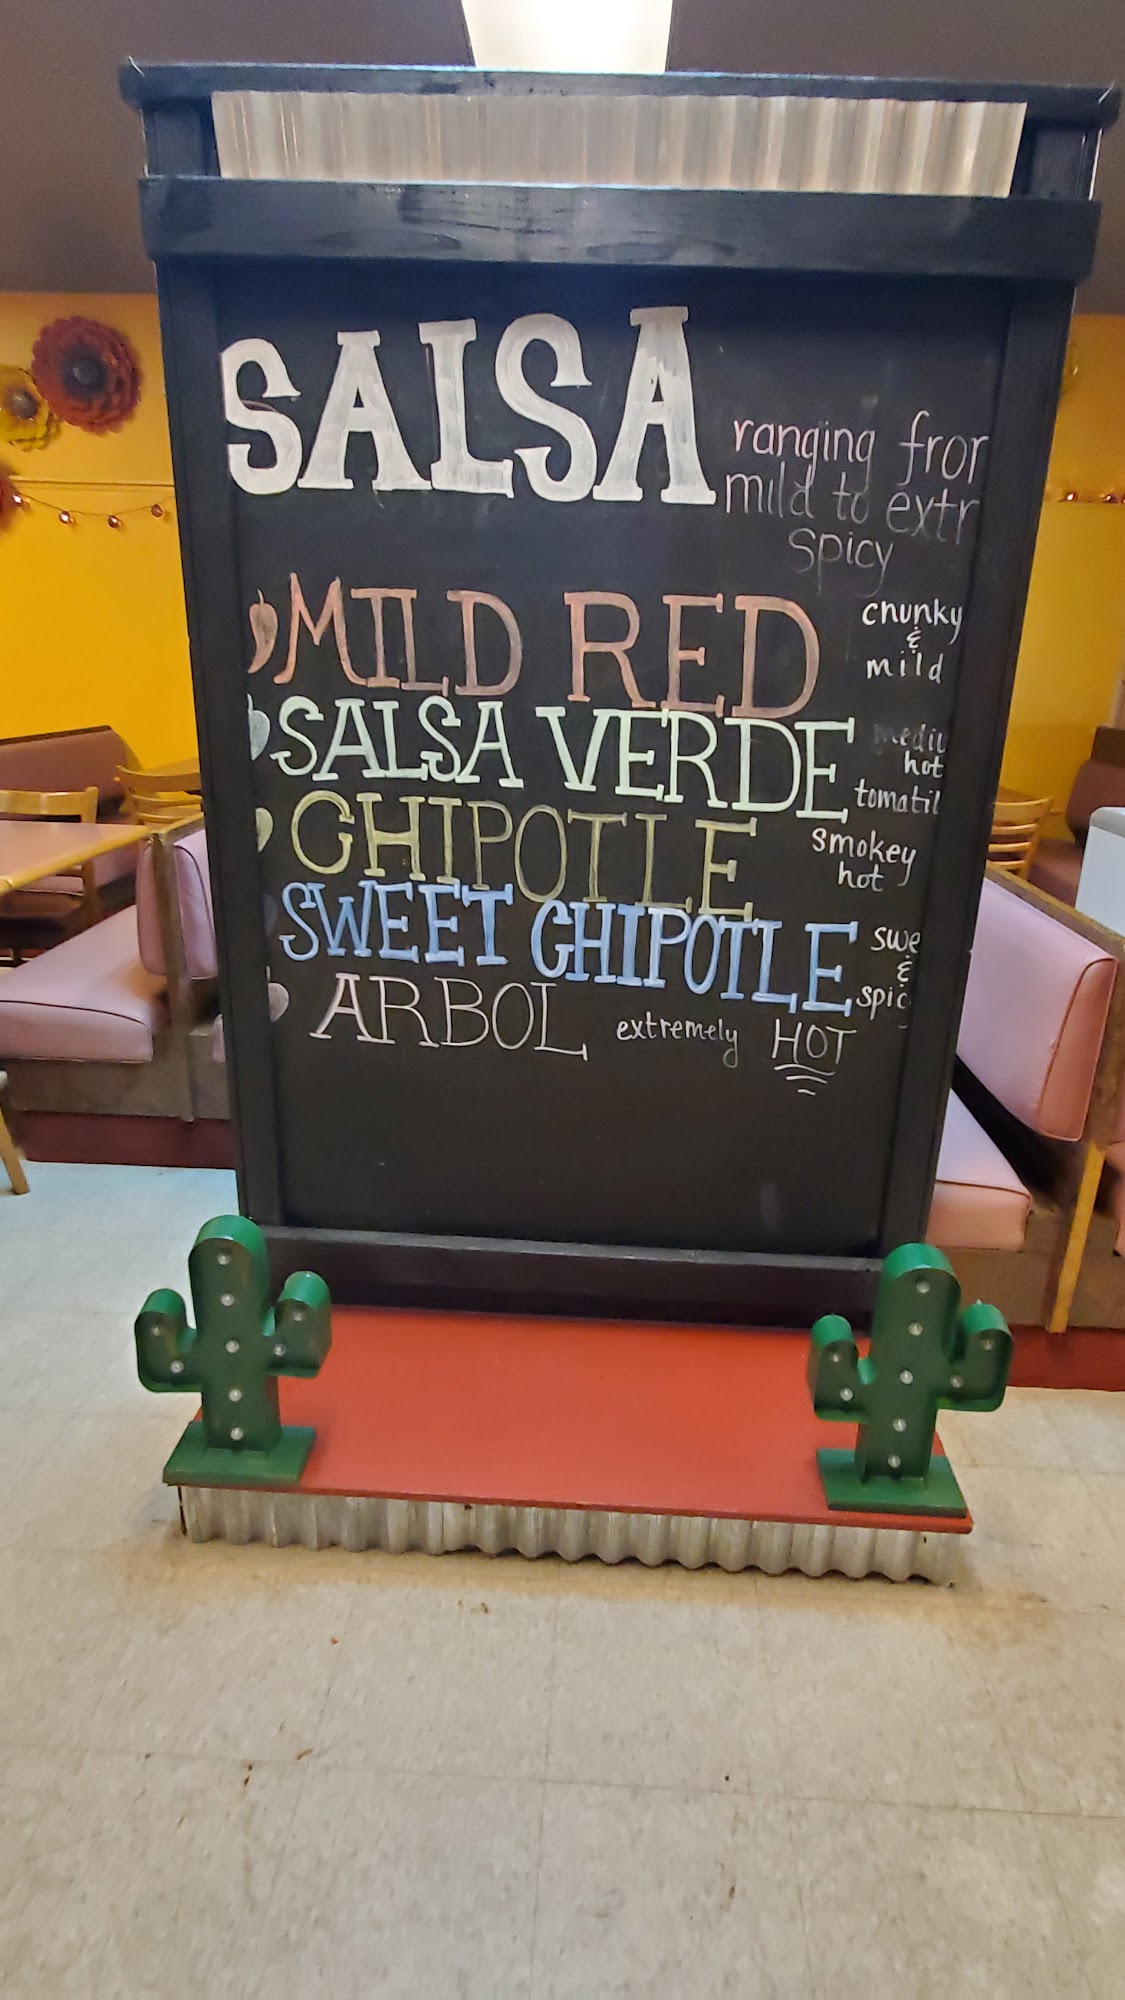 SALSA
ranging fror
mild to extr
spicy
MILD RED
chunky
&
mild
SALSA VERDE
mediu
hot
tomatil
CHIPOTLE
smokey
hot
SWEET CHIPOTLE
swe
&
spic
ARBOL
extremely HOT